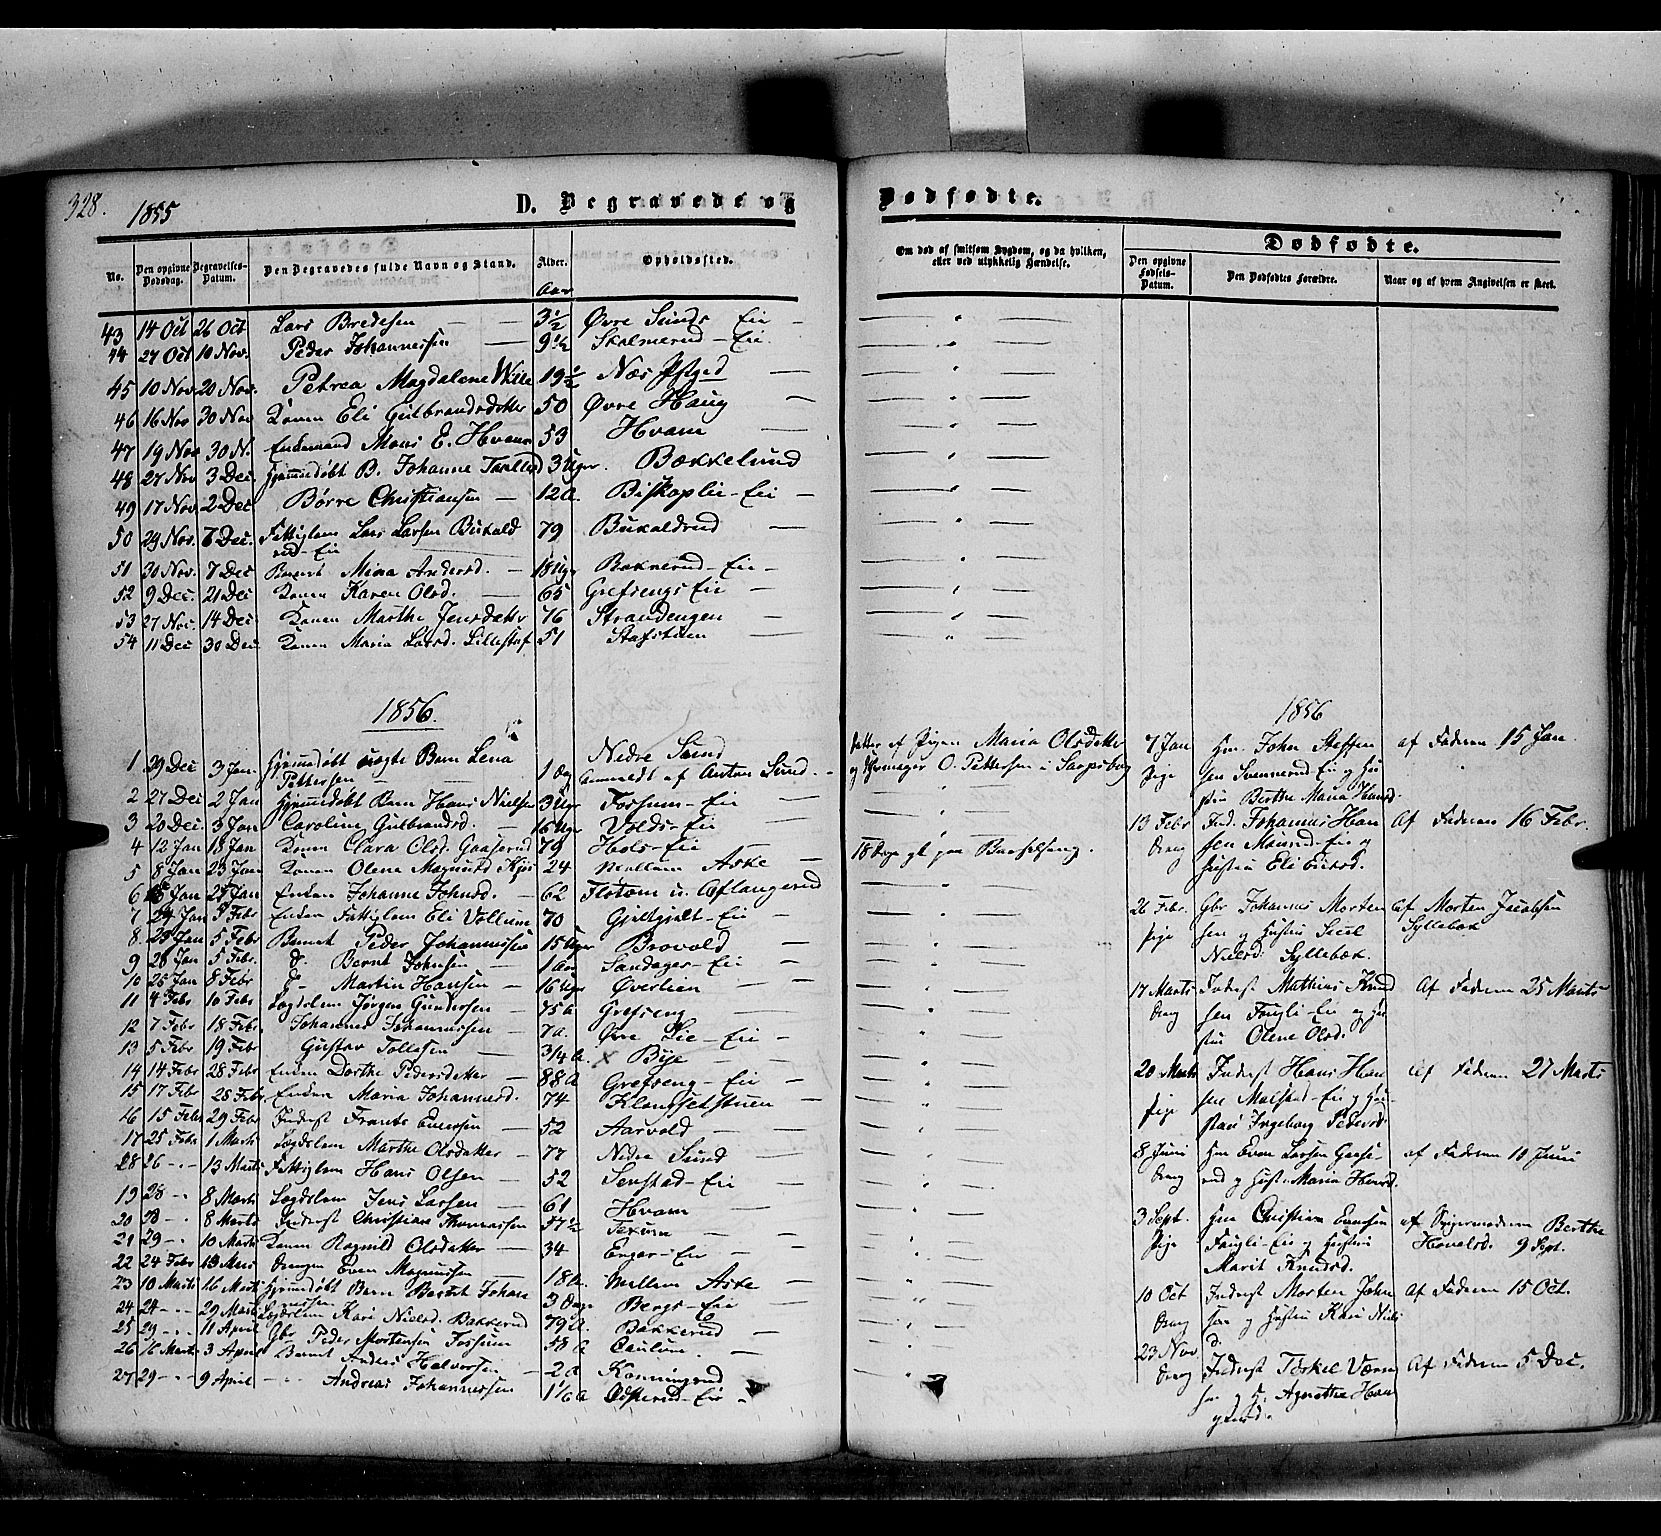 328.
1855
D. Begravede og
Dødfødte.
No.
Den opgivne Dødsdag.
Begravelses-Datum.
Den Begravedes fulde Navn og Stand.
Alder.
Aar
Opholdssted.
Om død af smitsom Sygdom, og da hvilken, eller ved ulykkelig Hændelse.
Dødfødte.
Den opgivne Fødsels-Datum.
Den Dødfødtes Forældre.
Naar og af hvem Angivelsen er skeet.
43 14 Oct 26 Oct Lars Bredesen — 3½ Øvre Sunds Eie —
44 27 Oct 10 Nov. Peder Johannessen — 9½ Skolmerud-Eie.
45 10 Nov 20 Nov. Petrea Magdalene Wille 19½ Næs Pstgd —
46 16 Nov 30 Nov Konen Eli Gulbrandsdatter 50 Øvre Haug —
47 19 Nov 30 N. Enkemand Mons E. Hvam 53 Hvam —
48 27 Nov 3 Dec Hjemmedøbt B. Johanne 3 Uger. Bækkelund
49 17 Nov 2 Dec Børre Christiansen — 12 A. Biskoplie-Eie —
50 29 Nov. 6 Dec. Fattiglem Lars Larsen Bukold 79 Bukoldrud —
rud-Eie
51 30 Nov. 7 Dec Barnet Mina Andersd. — 18 Uger Bakkerud-Eie —
52 9 Dec. 21 Dec Konen Karen Olsd. — 65 Grefsengs Eie —
53 27 Nov. 14 Dec Konen Marthe Jensdatter 76 Strandengen —
54 11 Dec 30 Dec Konen Maria Larsd. Lillestaf 51 Stafstuen —
1856.
1 29 Dec 3 Jan. Hjemmedøbt uægte Barn Lena Pettersen 1 Dag Nedre Sund anmeldt af Anton Sund. —
2 27 Dec 2 Jan Hjemmedøbt Barn Hans Nielsen 3 Uger Fossum-Eie —
3 20 Dec. 3 Jan Caroline Gulbrandsd. — 16 Uger Volds-Eie —
4 12 Jan 18 Jan Konen Clara Olsd. Gaaserud 79 Hols-Eie —
5 8 Jan 23 Jan Konen Olene Magnusd 24 Mellem Aske —
6 Jan 25 Jan Enken Johanne Johnsd. — 62 Flotom u. Aslangerud
7 24 Jan 5 Febr Enken Fattiglem Eli Vollum 70 Gjeltgjelt-Eie —
8 25 Jan 5 Febr Barnet Peder Johannessen 15 Uger Brovold —
9 28 Jan 5 Febr. d. Bernt Johnsen — 1 Aar Sandager-Eie —
10 25 Jan 8 Febr d— Martin Hansen — 16 Uger Øverlien —
11 4 Febr 10 Febr Lægdslem Jørgen Gundersen — 75 A Grefseng —
12 7 Febr 18 Febr. Johannes Johannessen — 7 A. Øvre Lie-Eie —
13 5 Febr 19 Febr Gustav Tollefsen — 3/4 A. × Bye —
14 14 Febr 28 Febr Enken Dorthe Pedersdatter — 88 A Grefseng-Eie —
15 17 Febr 25 Febr. Enken Maria Johannesd. 74 Klongsetstuen —
16 15 Febr 29 Febr Inderst Frants Evensen — 52 Aarvold —
17 25 Febr 1 Marts Lægdslem Marthe Olsdatter — 77 Nedre Sund —
28 26 -"- 13 Marts Fattiglem Hans Olsen — 52 Senstad-Eie —
19 28 -"- 8 Marts Lægdslem Jens Larsen — 61 Hvam —
20 28 -"- 8 Marts Inderst Christian Thomassen 57½ Texum —
21 29 -"- 10 Marts Konen Ragnild Olsdatter — 34 Enger-Eie —
22 24 Febr 13 Mars Drengen Even Magnussen — 18 A. Mellem Aske —
23 10 Marts 16 Marts Hjemmedøbt Barn Berthe Johan nessen 3 Dage Bergs-Eie —
24 24 -"- 29 Marts Lægdslem Kari Nielsd. Bakkerud 79 A. Bakkerud —
25 29 -"- 11 April Gbr Peder Mortensen Fossum 58 A Caulum —
26 16 Marts 3 April Barnet Anders Halvorsen — 2 A Konningrud —
27 29 -"- 9 April -"- Andreas Johannessen 1 1/6 A Odserud-Eie —
Datter af Pigen Maria Olsdatter
og Skomager O. Pettersen i Sarpsborg
18 Dage gl. paa Barselseng.
1856
7 Jan Pige Hm. John Steffensen Svennerud-Eie og Hustru Berthe Maria Hansd. af Faderen 15 Jan.
13 Febr Dreng Ind. Johannes Hansen Mausud-Eie og Hustru Eli Eriksd. Af Faderen 16 Febr.
26 Febr. Pige Gbr Johannes Mortensen og Hustru Sidsel Nielsd. Syllebæk. Af Morten Jacobsen Syllebæk
17 Marts Dreng Inderst Mathias Knudsen Fougli-Eie og Hustru Olene Olsd. Af Faderen 25 Marts
20 Marts Pige Inderst Hans Hansen Molstad-Eie og Hustru Ingeborg Pedersd. Af Faderen 27 Marts
8 Juni Dreng Hm Even Larsen Gaaserud og Hust. Maria Hansd. af Faderen 10 Juni
3 Sept. Pige Hm Christian Evensen Fougli-Eie og Hustru Marit Knudsd. af Svigermoderen Berthe Hovelsd. 9 Sept.
10 Oct Dreng Inderst Morten Johnsen og Hustru Kari Nielsd. Af Faderen 15 Oct.
23 Nov Dreng Inderst Torkel Værnsen og H. Agnethe Haagensd. Af Faderen 5 Dec.